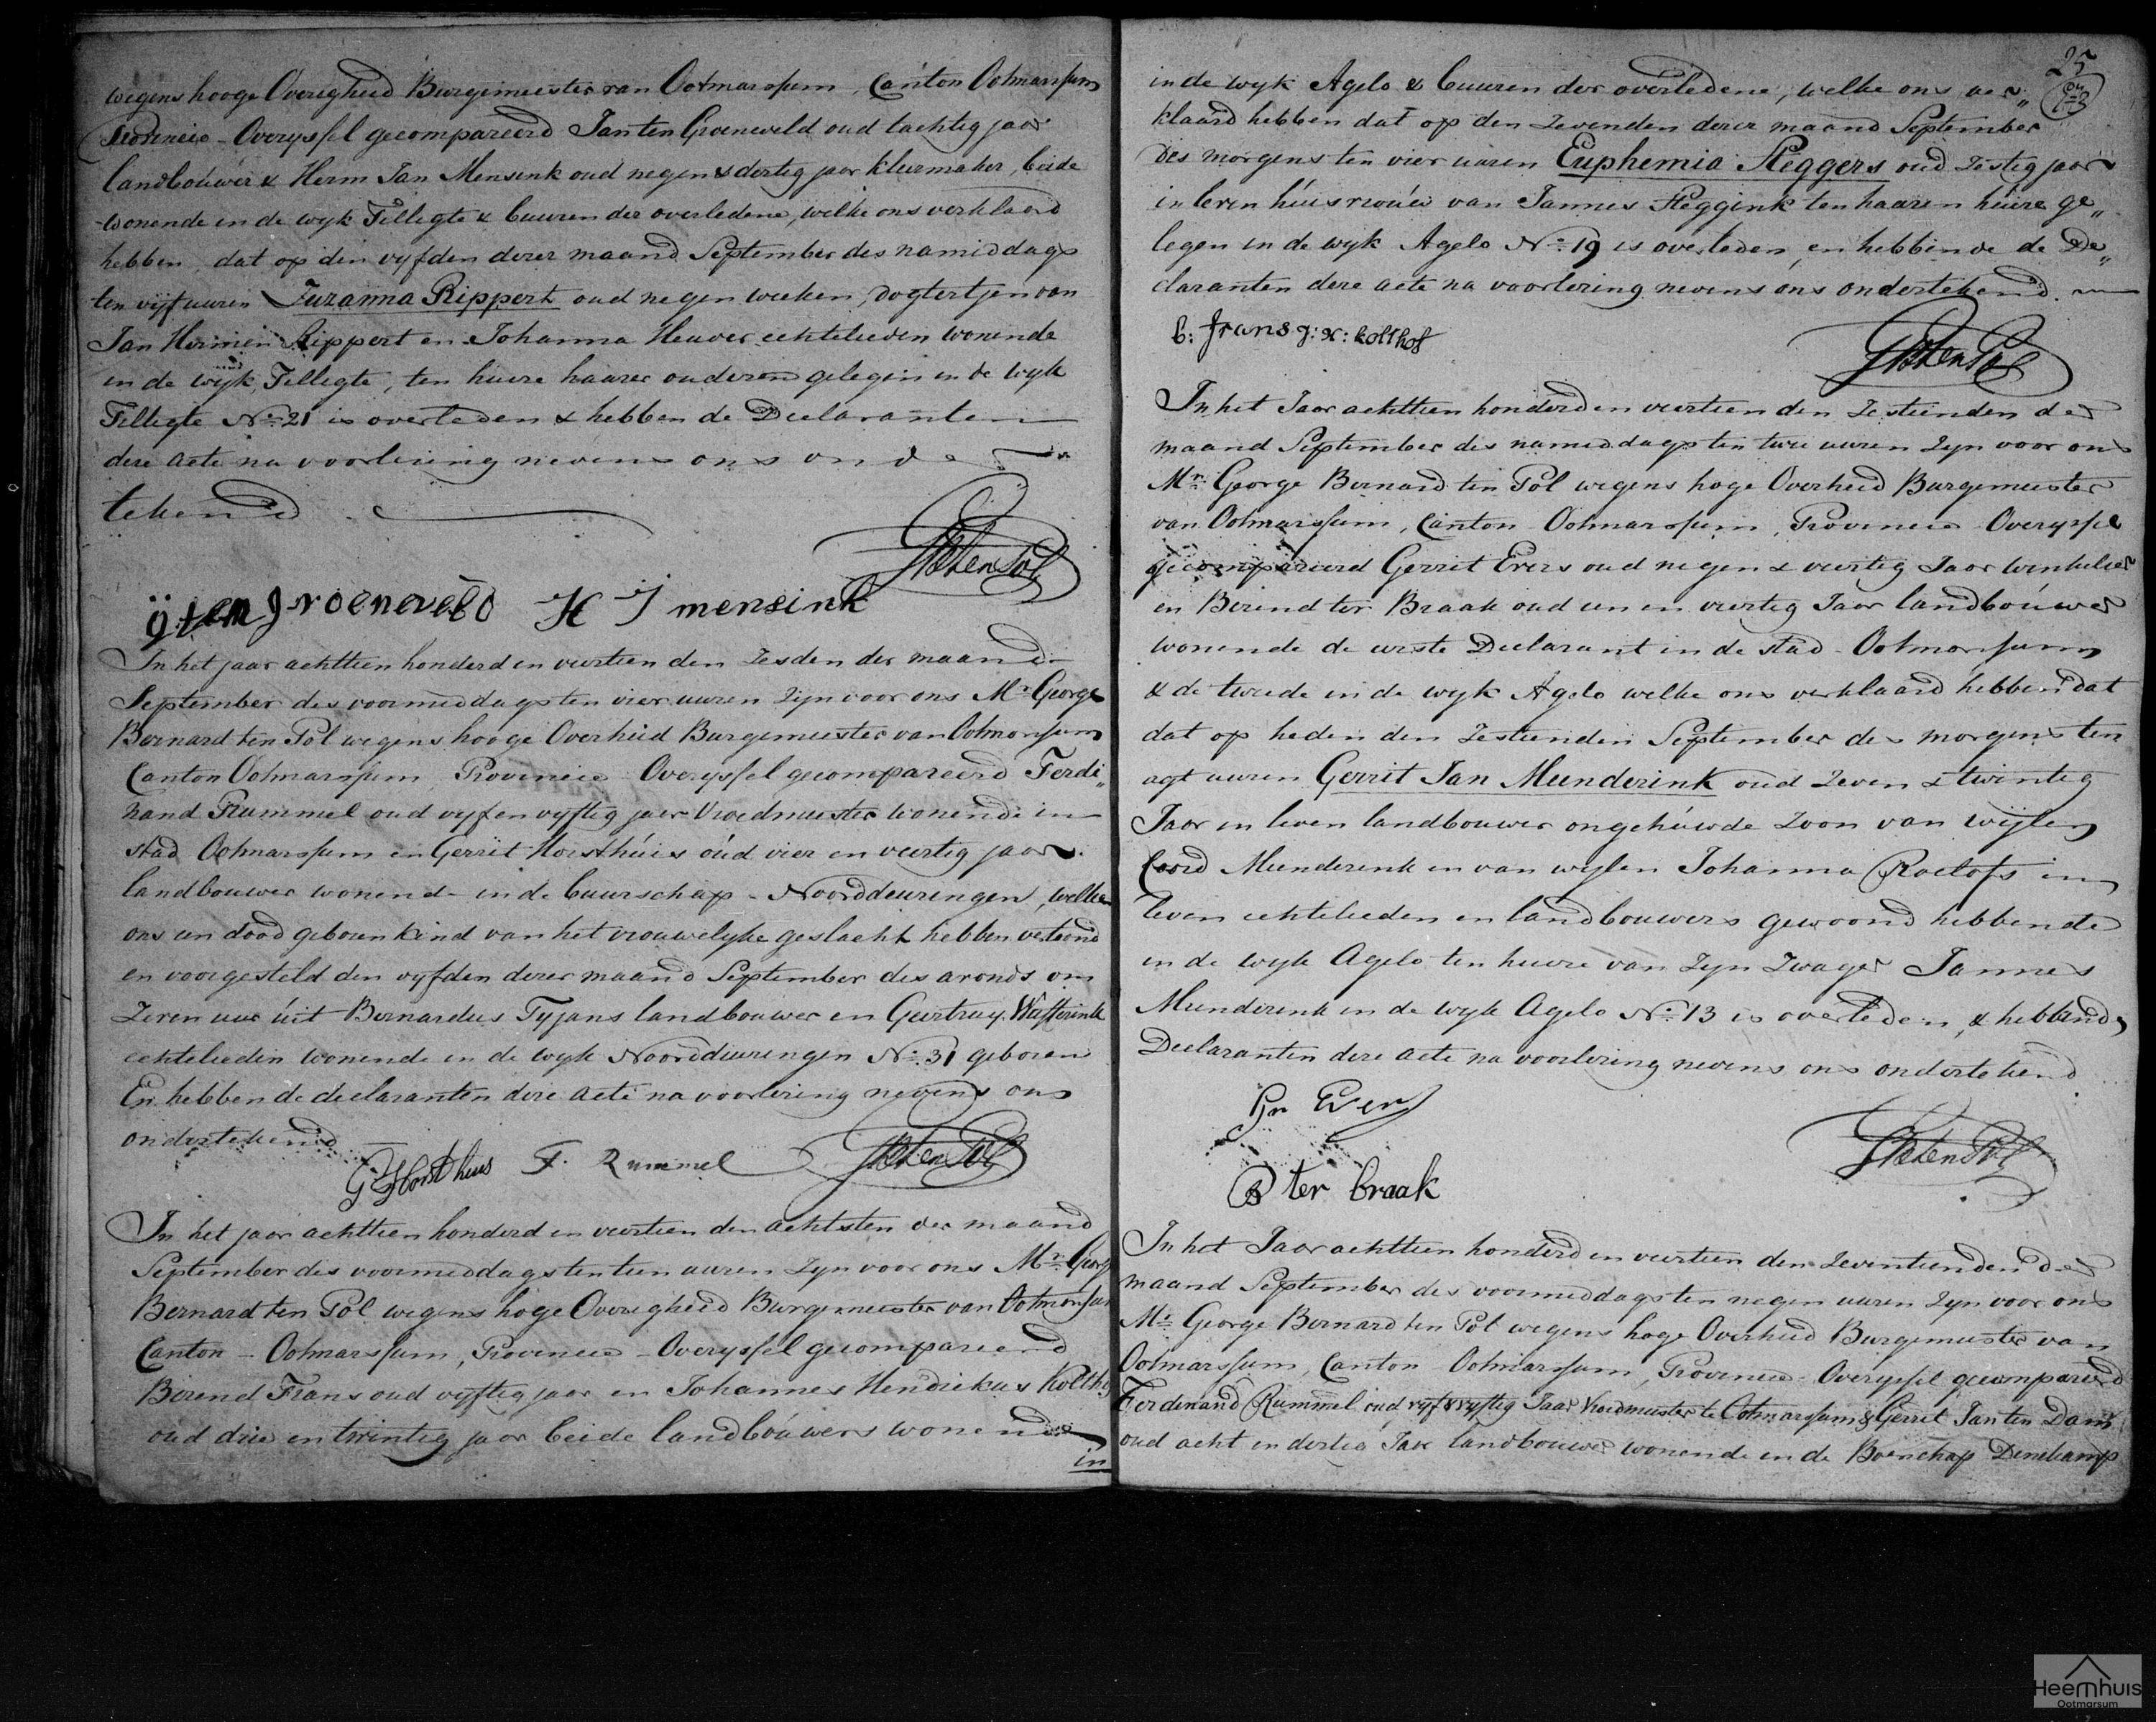 wegens hooge Overigheid Burgemeester van Ootmarssum, Canton Ootmarssum
Provincie - Overyssel gecompareerd Jan ten Groeneveld oud tachtig jaar
landbouwer & Herm Jan Mensink oud negen & dertig jaar kleermaker, beide
wonende in de wyk Tilligte & buuren der overledene, welke ons verklaard
hebben dat op den vyfden dezer maand September des namiddags
ten vijf uuren Zuzanna Rippert oud negen weeken, dogtertjen van
Jan Hermen Rippert en Johanna Heuver echtelieden wonende
in de wijk Tilligte, ten huize haarer ouderen gelegen in de wyk
Tilligte No. 21 is overleden & hebben de Declaranten
deze acte na voorlezing nevens ons onder
tekend
GBtenPol
ten groeneveld H J mensink
In het jaar achttien honderd en veertien den Zesden der maand
September des voormiddags ten vier uuren Zyn voor ons Mr. George
Bernard ten Pol wegens hooge Overheid Burgemeester van Ootmarssum
Canton Ootmarssum Provincie Overyssel gecompareerd Ferdi„
nand Rummel oud vyf en vyftig jaar Vroedmeester wonende in
stad Ootmarssum en Gerrit Horsthúis oúd vier en veertig jaar
landbouwer wonend in de buurschap - Noorddeuringen, welke
ons een dood geboren kind van het vrouwelyke geslacht hebben vertoond
en voorgesteld den vyfden dezer maand September des avonds om
Zeven uur úit Bernardus Tyjans landbouwer en Geertruy Wasserink
echtelieden wonende in de wyk Noorddeuringen No. 31 geboren
En hebben de declaranten deze acte na voorlezing nevens ons
ondertekend
G Horsthuis F. Rummel GBtenPol
In het jaar achttien honderd en veertien den achtsten der maand
September des voormiddags ten tien uuren Zyn voor ons Mr. Georg
Bernard ten Pol wegens hoge Overigheid Burgemeester van Ootmarssum
Canton - Ootmarssum, Provincie - Overyssel gecompareerd
Berend Frans oud vyftig jaar en Johannes Hendrikus Kolthof
oud drie en twintig jaar beide landboúwers wonende
in
25
in de wyk Agelo & buuren der overledene, welke ons ver„
klaard hebben dat op den Zevenden dezer maand September
des morgens ten vier uuren Euphemia Steggers oud Zestig jaar
in leven húisvrouw van Jannes Steggink ten haaren húize ge„
legen in de wyk Agelo No. 19 is overleden, en hebbende de De„
claranten deze acte na voorlezing nevens ons ondertekend
b: frans g: H: kolthof
GBtenPol
In het Jaar achttien honderd en veertien den Zestienden der
maand September des namiddags ten twee uuren Zyn voor ons
Mr. George Bernard ten Pol wegens hoge Overheid Burgemeester
van Ootmarssum, Canton Ootmarssum, Provincie Overyssel
gecompareerd Gerrit Evers oud negen & veertig Jaar winkelier
en Berend ter Braak oud een en veertig Jaar landboúwer
wonende de eerste Declarant in de stad Ootmarssum
& de tweede in de wyk Agelo welke ons verklaard hebben dat
dat op heden den Zestienden September des morgens ten
agt uuren Gerrit Jan Meenderink oud Zeven & twintig
Jaar in leven landbouwer ongehúwde Zoon van wijlen
Coord Meenderink en van wijlen Johanna Roelofs in
leven echtelieden en landbouwers gewoond hebbende
in de wyk Agelo ten huize van Zyn Zwager Jannes
Meenderink in de wyk Agelo No. 13 is overleden, & hebbende
Declaranten deze acte na voorlezing nevens ons ondertekend
Gr Evers
GBtenPol
B ter braak
In het Jaar achttien honderd en veertien den Zeventienden der
maand September des voormiddags ten negen uuren Zyn voor ons
Mr. George Bernard ten Pol wegens hoge Overheid Burgemeester van
Ootmarssum, Canton Ootmarssum, Provincie Overyssel gecompareerd
Ferdinand Rummel oud vyf & vyftig Jaar Vroedmeester te Ootmarssum & Gerrit Jan ten Dam
oud acht en dertig Jaar landbouwer wonende in de Boerschap Denekamp
Heemhuis
Ootmarsum